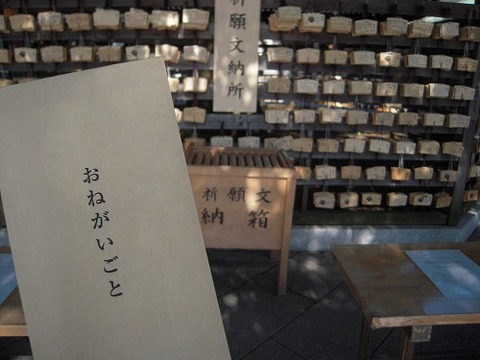 おねがいごと
祈願文納所
祈願文
納箱